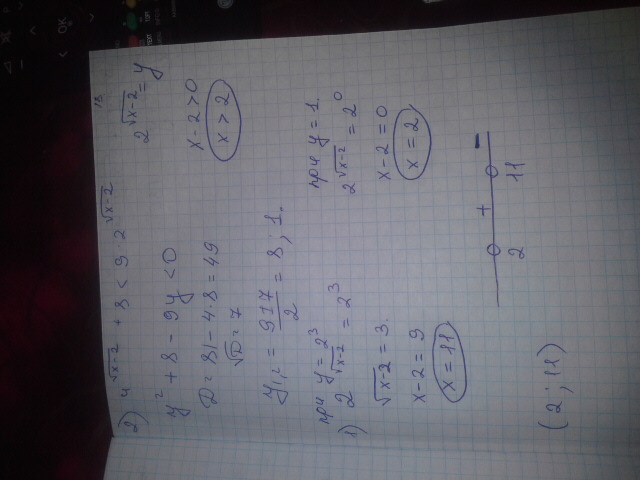 2) 4^√(x-2) + 8 < 9 · 2^√(x-2)
2^√(x-2) = y
y² + 8 - 9y < 0
x - 2 > 0
x > 2
D = 81 - 4·8 = 49
√D = 7
y₁,₂ = (9±7)/2 = 8; 1.
при y = 2³
1) 2^√(x-2) = 2³
√(x-2) = 3.
x - 2 = 9
x = 11
при y = 1.
2^√(x-2) = 2⁰
x - 2 = 0
x = 2
+ -
2 11
(2; 11)